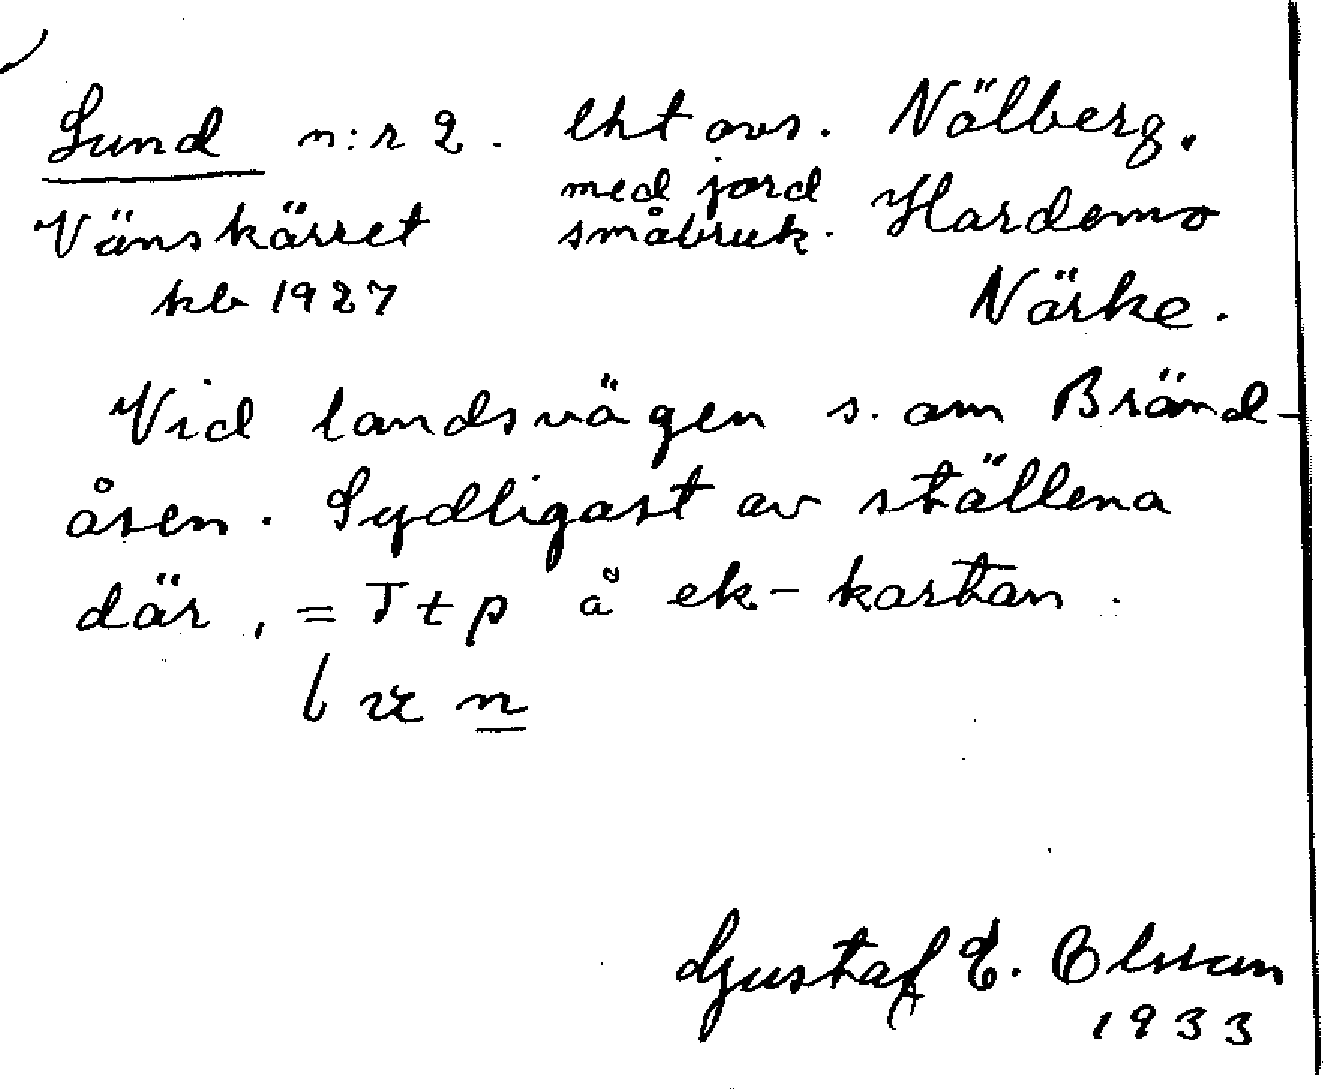 Lund n:r 2. lht avs. Nälberg.
Vänskärret med jord småbruk. Hardemo
kb 1927 Närke.
Vid landsvägen s. om Bränd-
åsen. Sydligast av ställena
där, = T t p å ek-kartan.
n
Gustaf E. Olsson
1933